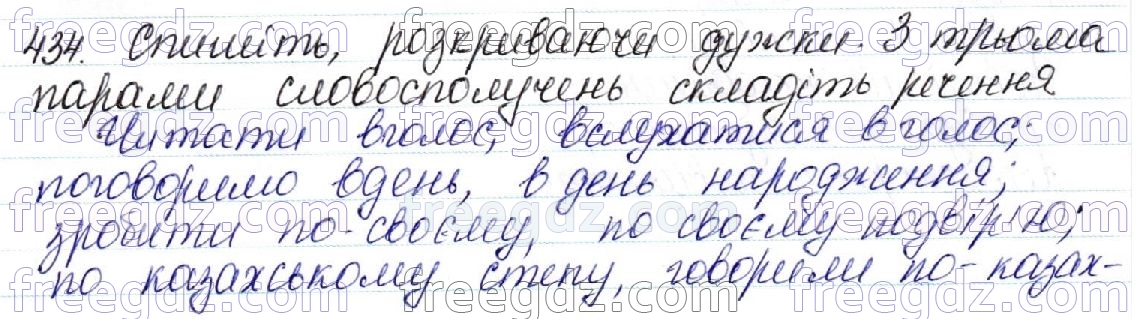 434. Спишіть, розкриваючи дужки. З трьома
парами словосполучень складіть речення
Читати вголос, вслухатися в голос;
поговоримо вдень, в день народження;
зробити по-своєму, по своєму подвір'ю;
по казахському степу, говорили по-казах-